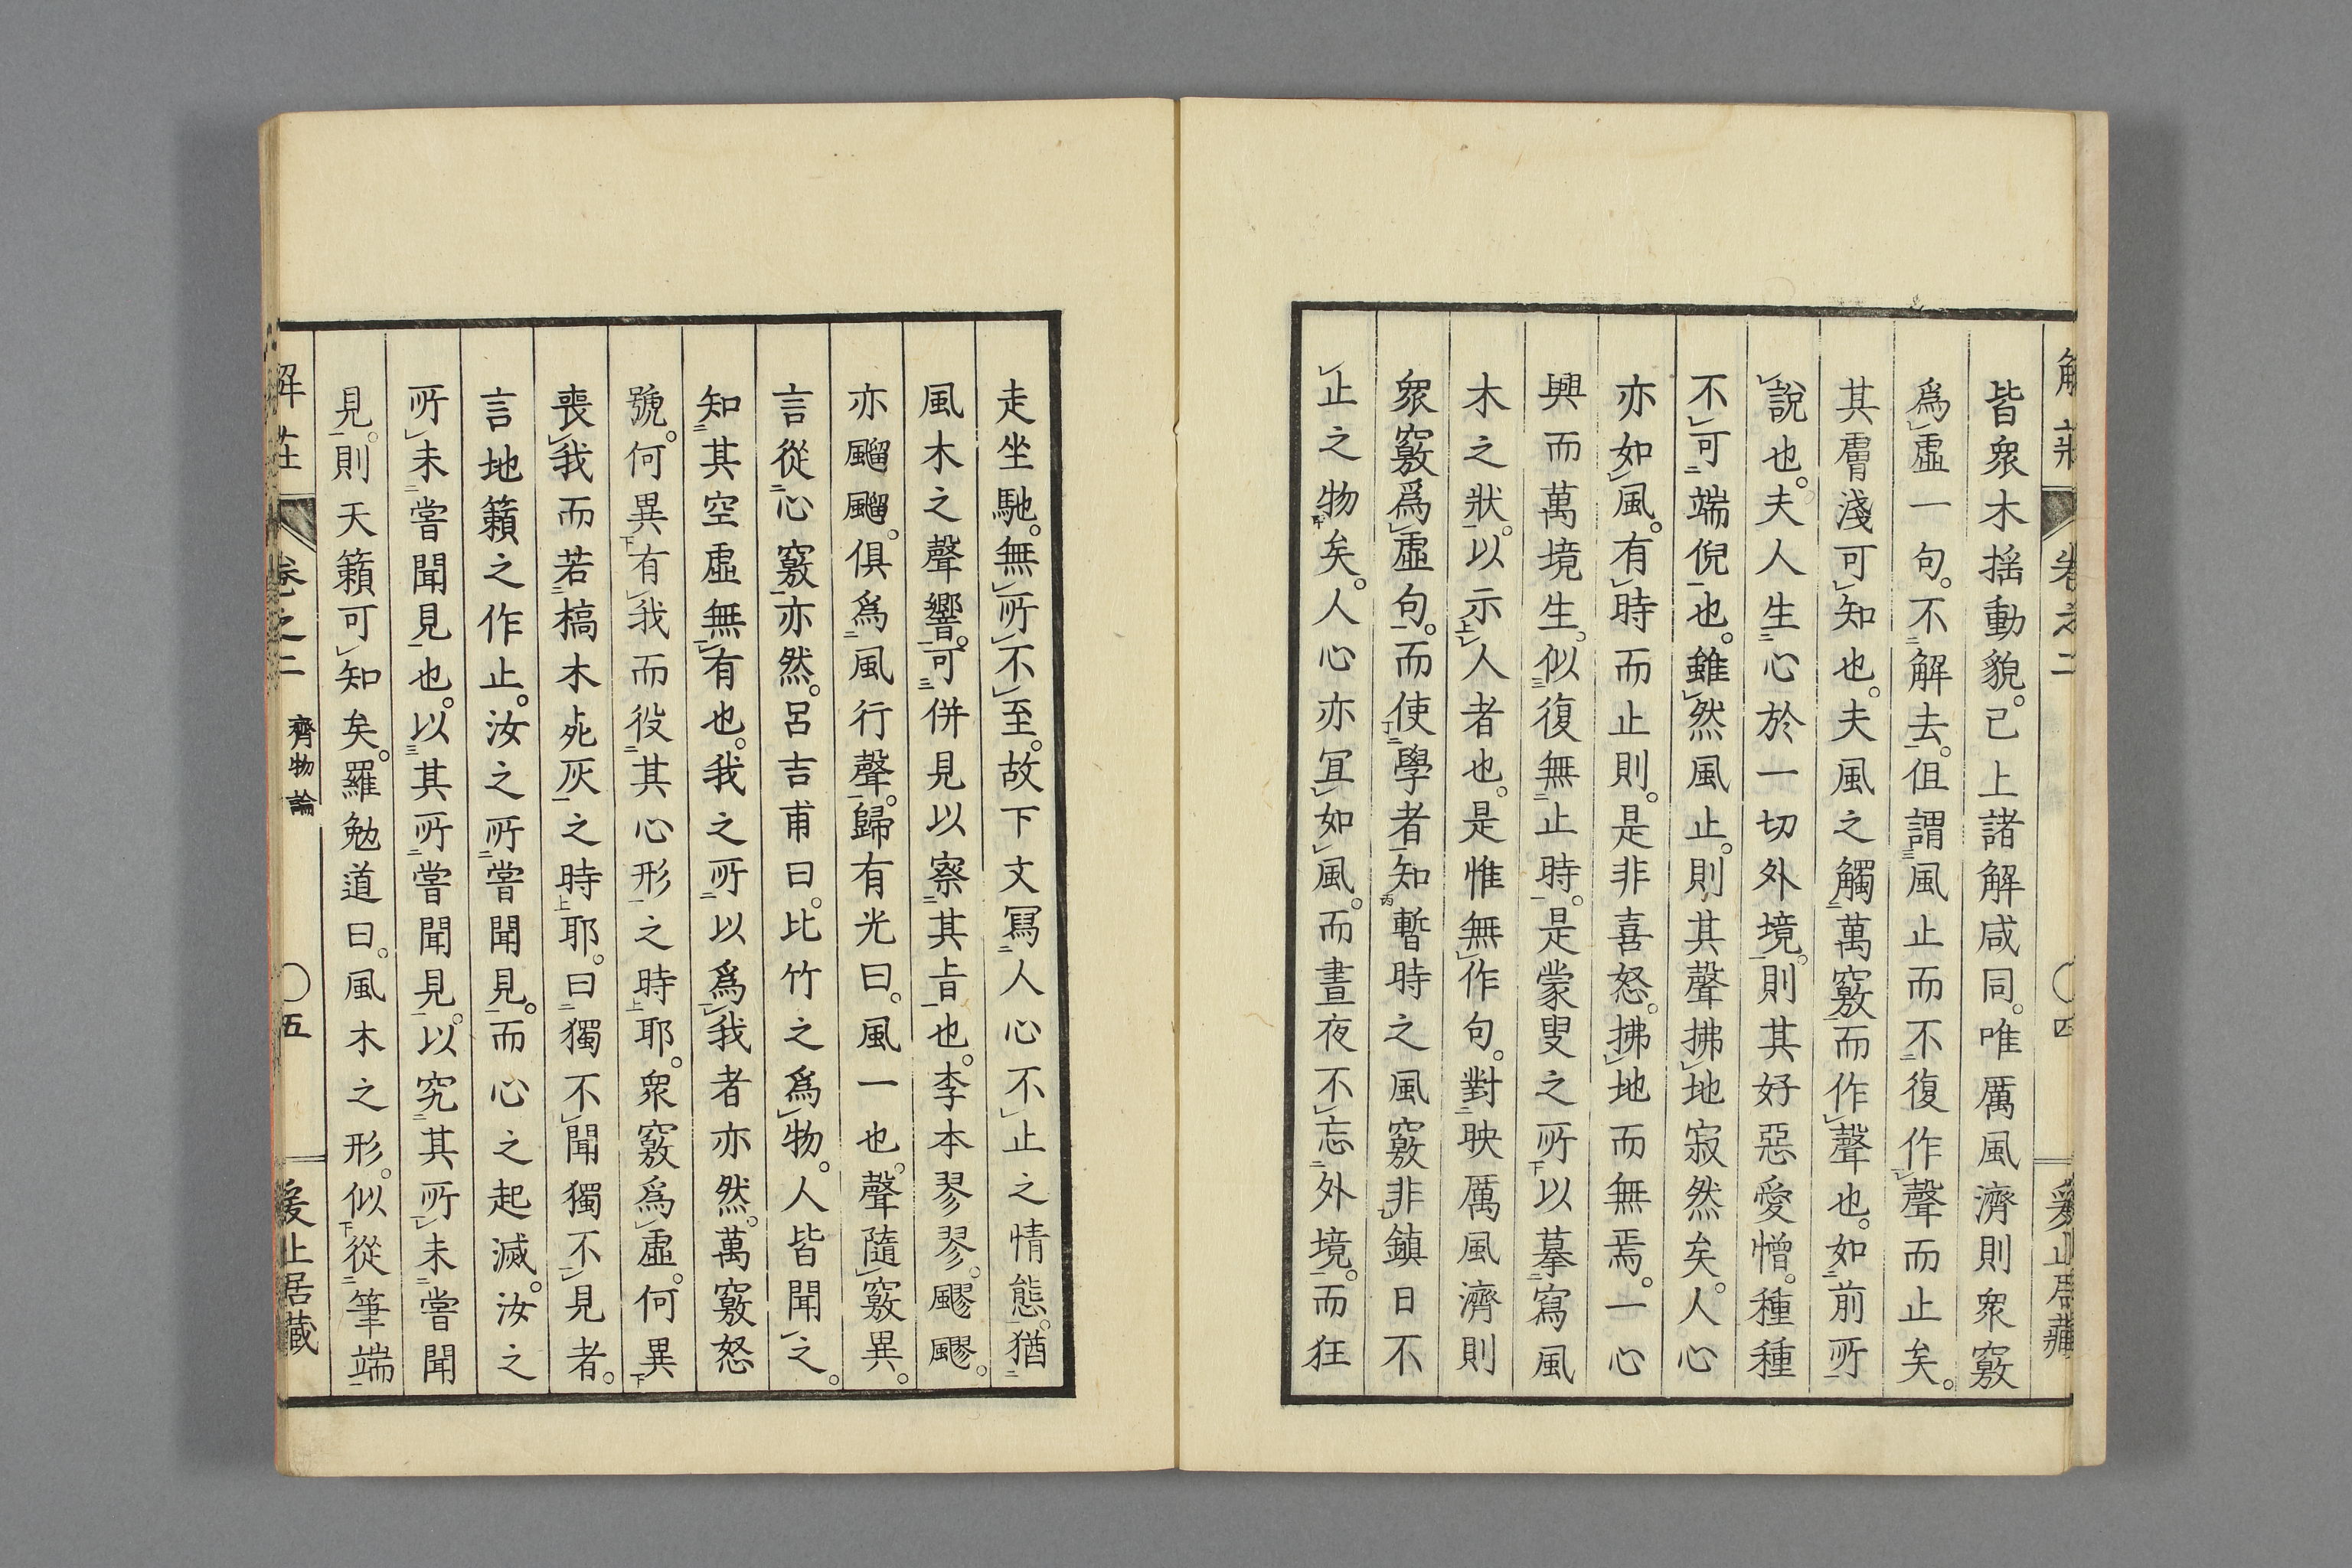 解莊 卷之二 ○四 爰止居藏
皆衆木搖動貌。已上諸解咸同。唯厲風濟則衆竅
爲虛一句。不解去。但謂風止而不復作聲而止矣。
其膚淺可知也。夫風之觸萬竅而作聲也。如前所
說也。夫人生心於一切外境。則其好惡愛憎。種種
不可端倪也。雖然風止。則其聲拂地寂然矣。人心
亦如風。有時而止則。是非喜怒。拂地而無焉。一心
興而萬境生。似復無止時。是蒙叟之所以摹寫風
木之狀。以示人者也。是惟無作句。對映厲風濟則
衆竅爲虛句。而使學者知暫時之風竅非鎮日不
止之物矣。人心亦冝如風。而晝夜不忘外境。而狂
走坐馳。無所不至。故下文冩人心不止之情態。猶
風木之聲響。可併見以察其㫖也。李本翏翏。飂飂。
亦飀飀。俱爲風行聲。歸有光曰。風一也。聲隨竅異。
言從心竅亦然。呂吉甫曰。比竹之爲物。人皆聞之。
知其空虛無有也。我之所以爲我者亦然。萬竅怒
號。何異有我而役其心形之時耶。衆竅爲虛。何異
喪我而若槁木死灰之時耶。曰獨不聞獨不見者。
言地籟之作止。汝之所嘗聞見。而心之起滅。汝之
所未嘗聞見也。以其所嘗聞見。以究其所未嘗聞
見。則天籟可知矣。羅勉道曰。風木之形。似從筆端
解莊 卷之二 齊物論 ○五 爰止居藏